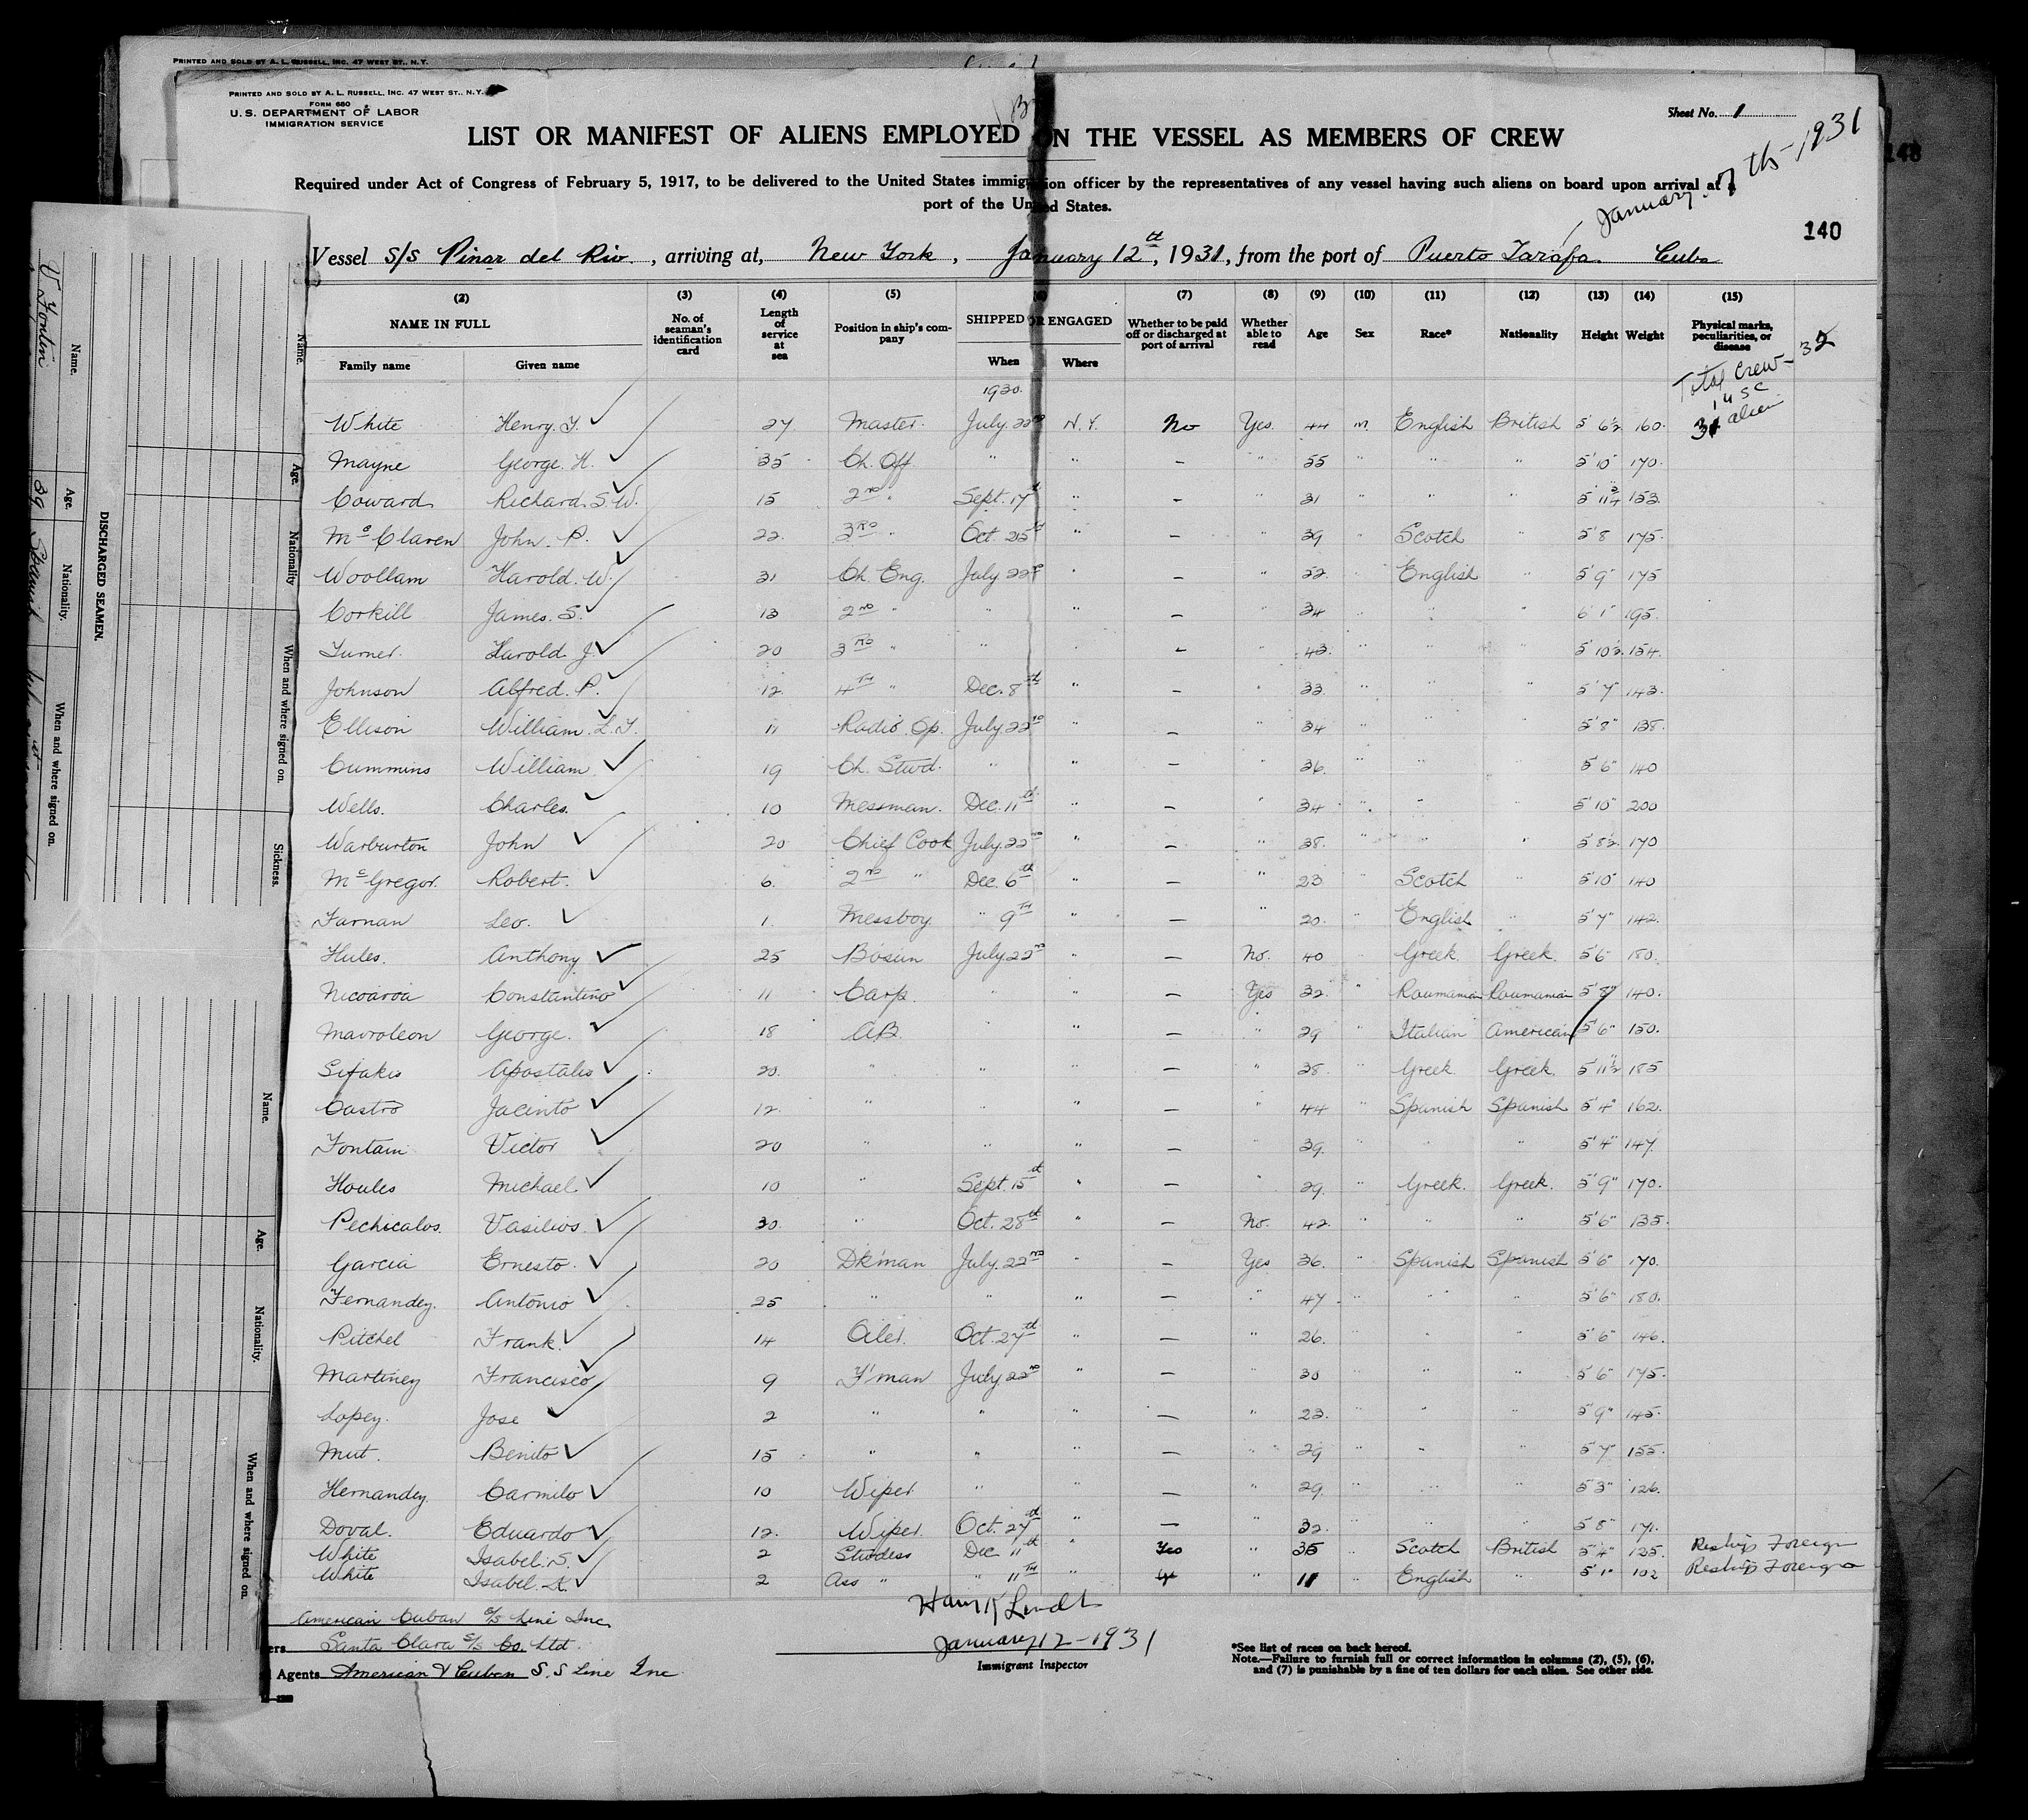 PRINTED AND SOLD BY A. L. RUSSELL, INC. 47 WEST ST., N. Y.
PRINTED AND SOLD BY A. L. RUSSELL, INC. 47 WEST ST., N. Y.
FORM 680
U. S. DEPARTMENT OF LABOR
IMMIGRATION SERVICE
Sheet No. 1
LIST OR MANIFEST OF ALIENS EMPLOYED ON THE VESSEL AS MEMBERS OF CREW
148
Required under Act of Congress of February 5, 1917, to be delivered to the United States immigration officer by the representatives of any vessel having such aliens on board upon arrival at a
port of the United States.
January 7th-1931
140
Vessel S/S Pinar del Rio, arriving at, New York, January 12th, 1931, from the port of Puerto Tarafa Cuba
(2) (3) (4) (5) (6) (7) (8) (9) (10) (11) (12) (13) (14) (15)
NAME IN FULL No. of seaman's identification card Length of service at sea Position in ship's company SHIPPED OR ENGAGED Whether to be paid off or discharged at port of arrival Whether able to read Age Sex Race* Nationality Height Weight Physical marks, peculiarities, or disease
Family name Given name When Where
1930.
Total Crew - 32
1 USC
31 alien
White Henry. T. 27 Master. July 22nd N.Y. No Yes. 44 M. English British 5' 6½ 160.
Mayne George. H. 35 Ch. Off " " - " 55 " " " 5'10" 170.
Coward Richard. S. W. 15 2nd " Sept. 17th " - " 31 " " " 5'11¾ 153.
McClaren John. P. 22. 3RD " Oct. 25th " - " 39 " Scotch " 5'8 175.
Woollam Harold. W. 31 Ch Eng. July 22nd " - " 52. " English " 5'9" 175
Corkill James. S. 13 2nd " " " - " 34 " " " 6'1" 195.
Turner. Harold J. 20 3RD " " " - " 43. " " " 5'10½ 154.
Johnson Alfred. P. 12 4TH " Dec. 8th " - " 33 " " " 5'7" 143.
Ellison William. L.T. 11 Radio Op. July 22nd " - " 34 " " " 5'8" 138.
Cummins William 19 Ch. Stwd. " " - " 36. " " " 5'6" 140
Wells. Charles. 10 Messman. Dec. 11th " - " 34 " " " 5'10" 200
Warburton John 20 Chief Cook July 22nd " - " 38. " " " 5'8½ 170
McGregor. Robert. 6. 2nd " Dec. 6th " - " 23 " Scotch " 5'10" 140
Farnan Leo. 1. Messboy. " 9TH " - " 20. " English " 5'7" 142.
Hules. Anthony 25 Bosun July 22nd " - No. 40 " Greek. Greek. 5'6" 180.
Nicoaroa Constantino 11 Carp. " " - Yes 32. " Roumanian Roumanian 5'8" 140.
Mavroleon George. 18 AB. " " - " 29 " Italian American 5'6" 150.
Sifakis Apostalis 20. " " " - " 38 " Greek. Greek. 5'11½ 185
Castro Jacinto 12. " " " - " 44 " Spanish Spanish 5'4" 162.
Fontain Victor 20 " " " - " 39. " " " 5'4" 147.
Houles Michael 10 " Sept. 15th " - " 29. " Greek. Greek. 5'9" 170.
Pechicalos. Vasilios. 30. " Oct. 28th " - No. 42. " " " 5'6" 135.
Garcia Ernesto. 20 Dk'man July. 22nd " - Yes 36. " Spanish Spanish 5'6" 170.
Fernandez. Antonio 25 " " " - " 47 " " " 5'6" 180.
Pitchel Frank. 14 Oiler. Oct. 27th " - " 26. " " " 5'6" 146.
Martinez Francisco 9 F'man July 22nd " - " 30 " " " 5'6" 175.
Lopez. Jose 2 " " " - " 23. " " " 5'9" 145.
Mut. Benito 15 " " " - " 29 " " " 5'7" 155.
Hernandez. Carmilo 10 Wiper " " - " 29. " " " 5'3" 126.
Doval. Eduardo 12. Wiper. Oct. 27th " - " 32. " " " 5'8" 171.
White Isabel. S. 2 Stwdess Dec 11th " Yes " 35 " Scotch British 5'4" 125. Reship Foreign
White Isabel. K. 2 Ass " " 11TH " " 11 " English " 5'1" 102 Reship Foreign
American Cuban S/S Line Inc.
ers Santa Clara S/S Co. Ltd.
Agents American & Cuban S. S Line Inc
January 12-1931
Immigrant Inspector
*See list of races on back hereof.
Note.—Failure to furnish full or correct information in columns (2), (5), (6),
and (7) is punishable by a fine of ten dollars for each alien. See other side.
DISCHARGED SEAMEN.
Name. Age. Nationality. When and where signed on.
V. Fontin 39 Spanish
Name. Age. Nationality When and where signed on. Sickness.
Name. Age. Nationality. When and where signed on.